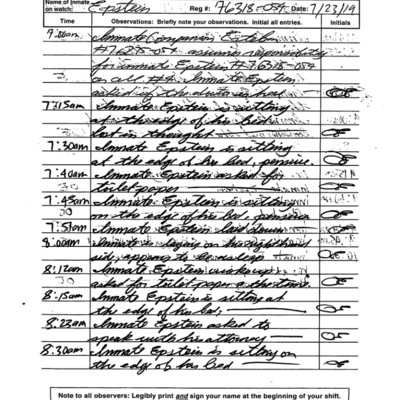 Name of Inmate
on watch: Epstein Reg #: 76318-054 Date: 7/23/19
Time Observations: Briefly note your observations. Initial all entries. Initials
Inmate Companion
#76318-054 assumes responsibility
for inmate Epstein #76318-054
on cell #4. Inmate Epstein
asked if the
7:15am Inmate Epstein is sitting
at the edge of his bed
lost in thought
7:30am Inmate Epstein is sitting
at the edge of his bed, pensive.
7:40am Inmate Epstein asked for
toilet paper
7:45am Inmate Epstein is sitting
on the edge of his bed, pensive
7:51am Inmate Epstein laid down
8:00am Inmate is laying on his right hand
side, appears to be asleep
8:12am Inmate Epstein woke up
asked for toilet paper & the time.
8:15am Inmate Epstein is sitting at
the edge of his bed,
8:23am Inmate Epstein asked to
speak with his attorney
8:30am Inmate Epstein is sitting on
the edge of his bed
Note to all observers: Legibly print and sign your name at the beginning of your shift.